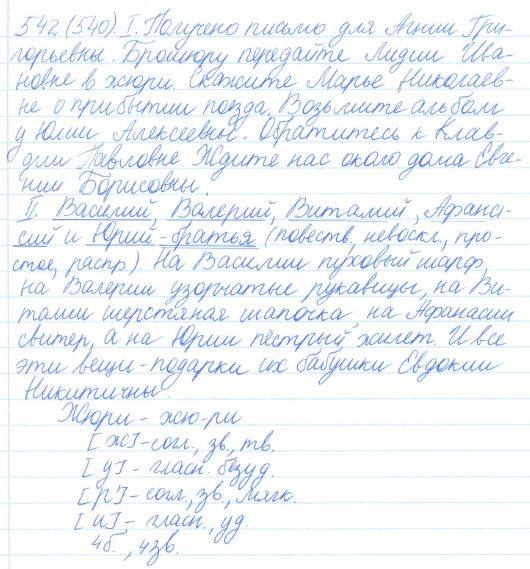 542 (540). I. Получено письмо для Агнии Гри-
горьевны. Брошюру передайте Лидии Ива-
новне в жюри. Скажите Марье Николаев-
не о прибытии поезда. Возьмите альбом
у Юлии Алексеевны. Обратитесь к Клав-
дии Павловне. Ждите нас около дома Евге-
нии Борисовны.
II. Василий, Валерий, Виталий, Афана-
сий и Юрий - братья (повеств., невоскл., про-
стое, распр.). На Василии пуховый шарф,
на Валерии узорчатые рукавицы, на Ви-
талии шерстяная шапочка, на Афанасии
свитер, а на Юрии пёстрый жилет. И все
эти вещи - подарки их бабушки Евдокии
Никитичны.
Жюри - жю-ри
[ж] - согл., зв., тв.
[у] - гласн. безуд.
[р'] - согл., зв., мягк.
[и] - гласн., уд.
4б., 4зв.